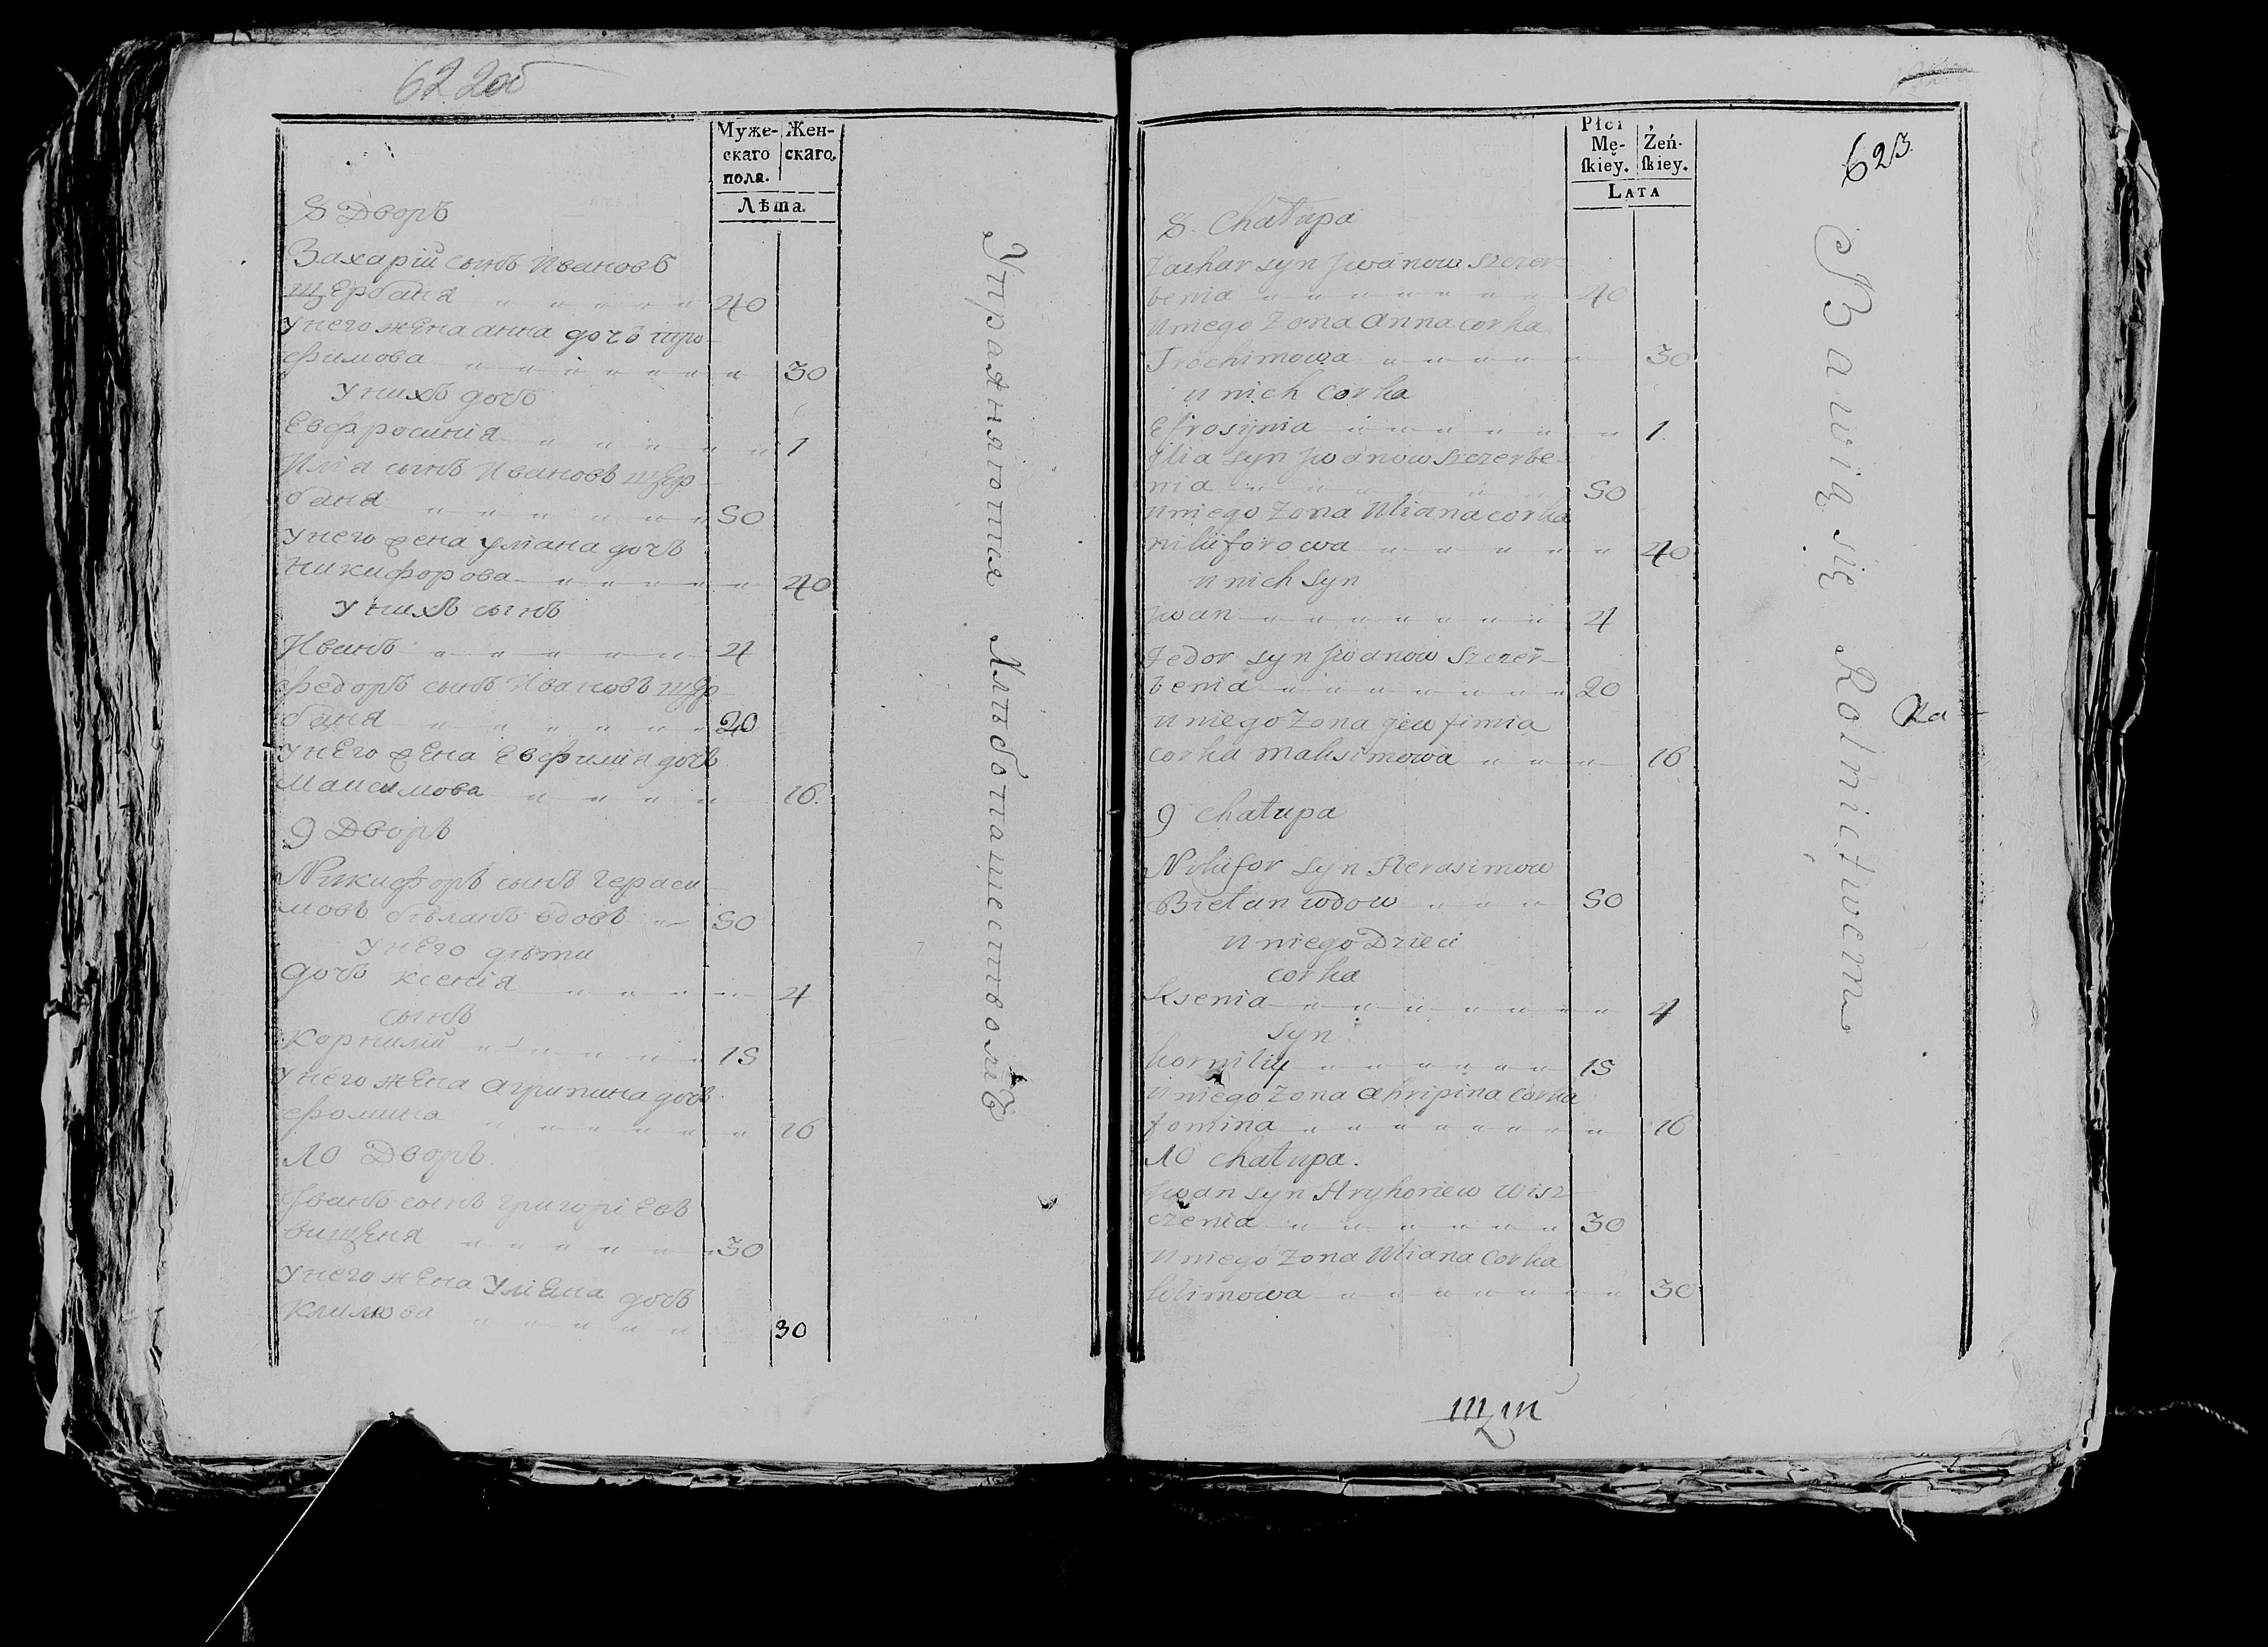 622об
Муже- Жен-
скаго скаго.
пола.
Лѣта.
8 Дворъ
Захарій сынъ Ивановъ
щербаня 40
у него жена анна дочъ тро-
фимова 30
у нихъ дочъ
Евфросинія 1
Илія сынъ Ивановъ щер-
баня 50
у него жена уліана дочъ
Никифорова 40
у нихъ сынъ
Иванъ 4
федоръ сынъ Ивановъ щер-
баня 20
у него жена Евфимія дочъ
Максимова 16.
9 Дворъ
Никифоръ сынъ Гераси-
мовъ бѣланъ вдовъ 50
у него дѣти
дочъ ксенія 4
сынъ
корнилій 15
у него жена агрипина дочъ
фомина 16
10 Дворъ.
Іванъ сынъ григоріевъ
вищеня 30
у него жена Уліана дочъ
климова 30
Упражняются хлѣбопашествомъ
623
Płci
Mę- Żeń-
skiey. skiey.
LATA
8. Chałupa
Zachar syn Jwanow Szczer-
benia 40
u niego Zona Anna corka
Trochimowa 30
u nich Corka
Efrosynia 1.
Jlia syn Jwanow Szczerbe-
nia 50
u niego Zona Uliana corka
nikiforowa 40
u nich Syn
Jwan 4
Fedor syn Jwanow Szczer-
benia 20
u niego Zona jewfimia
corka maksimowa 16
9 chałupa
Nikifor syn Herasimow
Biełan wdow 50
u niego Dzieci
corka
Ksenia 4
syn
korniliy 15
u niego Zona Ahripina Corka
fomina 16
10 chałupa.
Jwan syn Hryhoriew wisz-
czenia 30
u niego Zona Uliana Corka
klimowa 30
Bawią się Rolnictwem